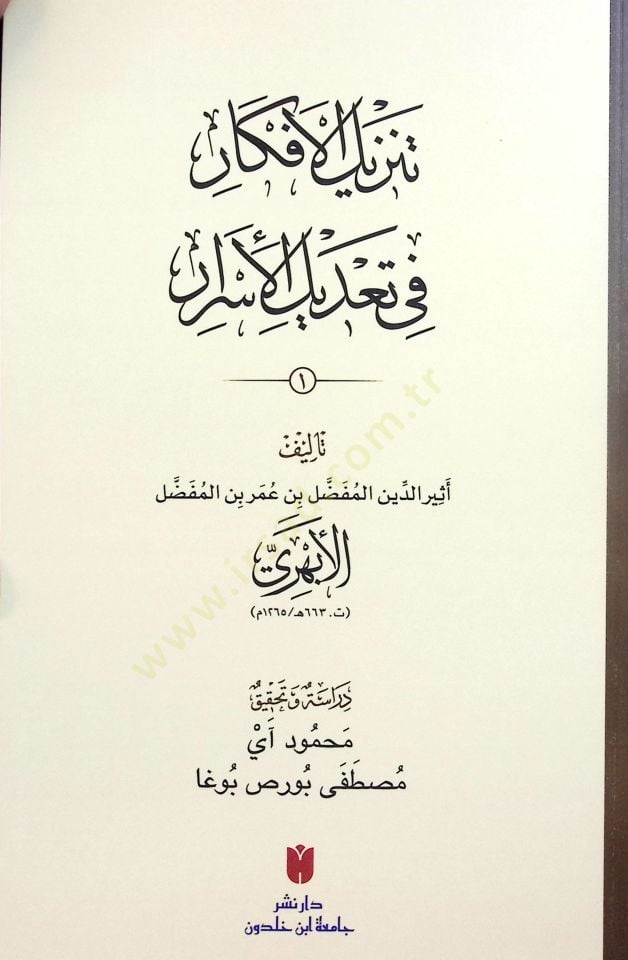 تنزيل الأفكار
في تعديل الأسرار
١
تأليف
أَثِير الدِّين المُفَضَّل بِن عُمَر بِن المُفَضَّل
الأبهريّ
(ت. ٦٦٣هـ/١٢٦٥م)
دِرَاسَةٌ وَتَحْقِيقٌ
مَحمُود آيْ
مُصطَفَى بُورص بُوغا
دار نشر
جامعة ابن خلدون